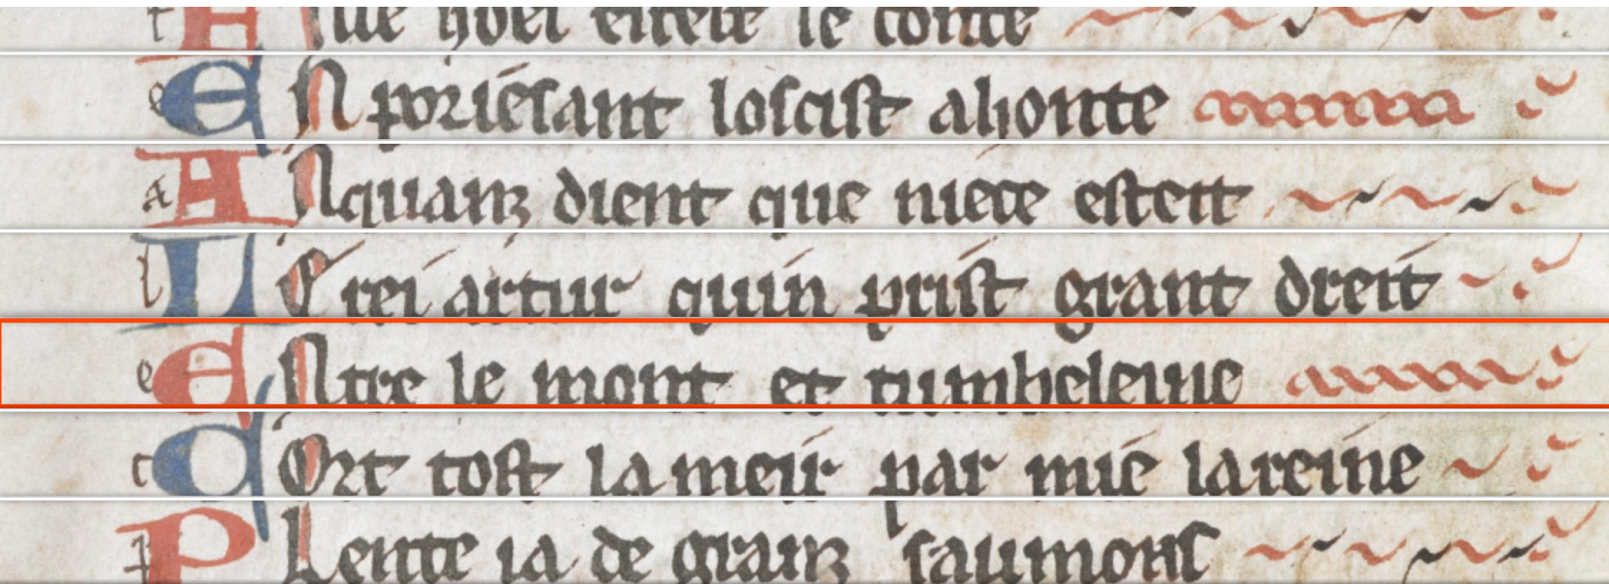 hoel le conte
EN poriesant loscist ahonte
ANquanz dient que niece esteit
LE rei artur quin prist grant dreit
ENtre le mont et tumbeleine
COrt tost la meir par mie lareine
PLente ia de granz saumons